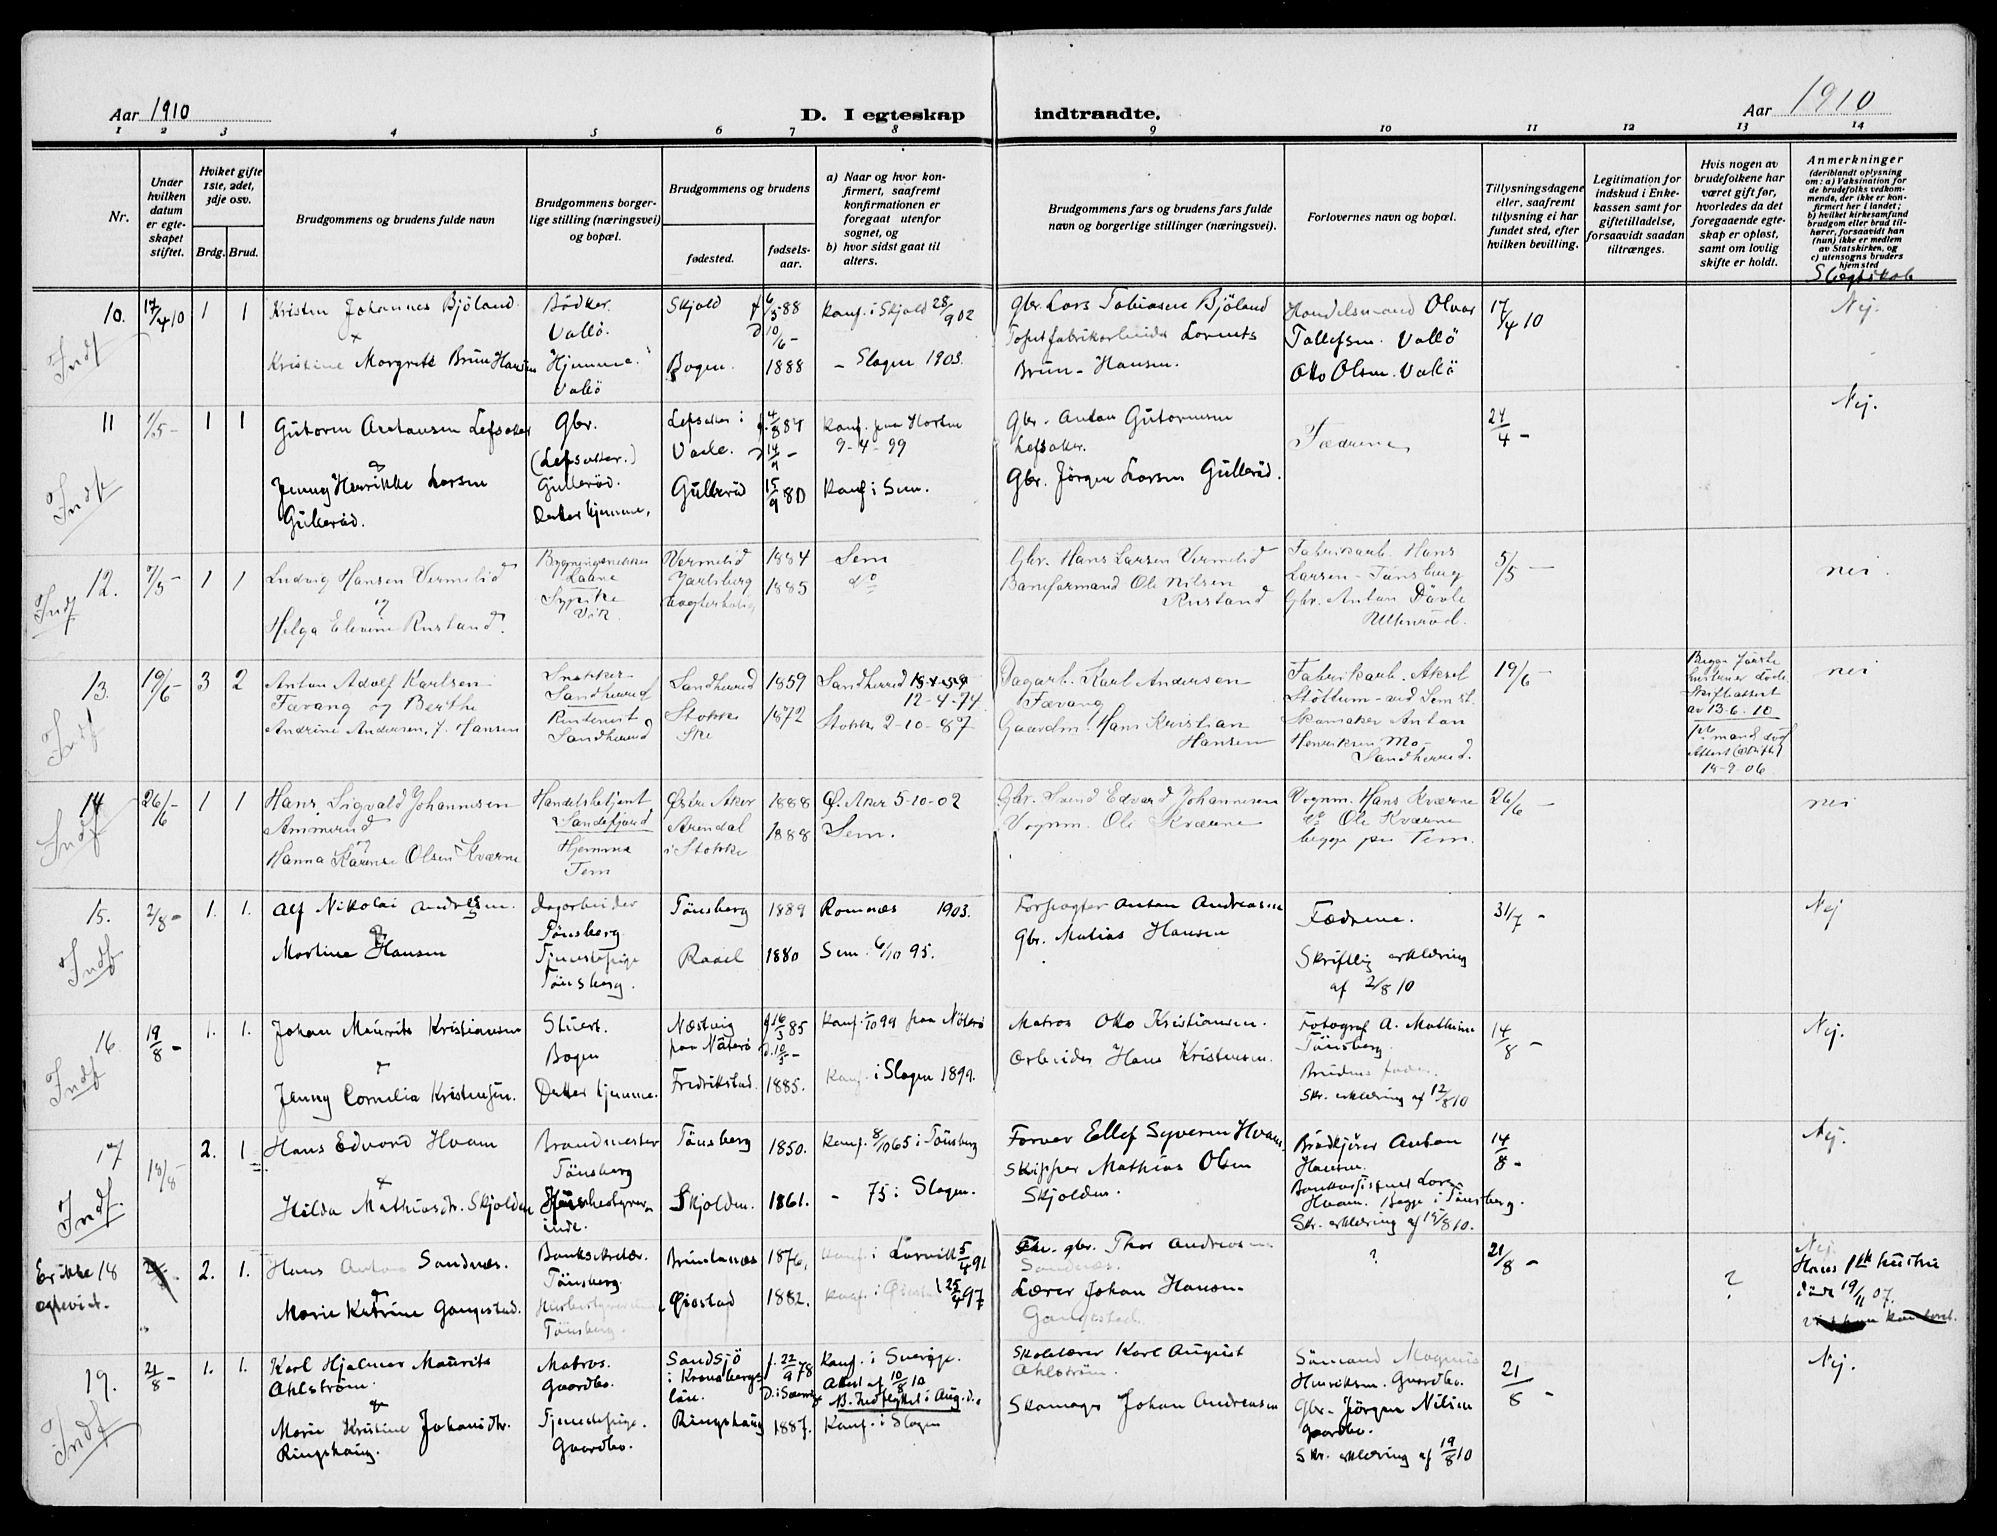 Aar 1910
D. I egteskap indtraadte.
Aar 1910
1 2 3 4 5 6 7 8 9 10 11 12 13 14
Nr.
Under hvilken datum er egte-skapet stiftet.
Hviket gifte 1ste, 2det, 3dje osv.
Brdg. Brud.
Brudgommens og brudens fulde navn
Brudgommens borger-lige stilling (næringsvei) og bopæl.
Brudgommens og brudens
fødested.
fødsels-aar.
a) Naar og hvor kon-firmert, saafremt konfirmationen er foregaat utenfor sognet, og
b) hvor sidst gaat til alters.
Brudgommens fars og brudens fars fulde navn og borgerlige stillinger (næringsvei).
Forlovernes navn og bopæl.
Tillysningsdagene eller, saafremt tillysning ei har fundet sted, efter hvilken bevilling.
Legitimation for indskud i Enke-kassen samt for giftetilladelse, forsaavidt saadan tiltrænges.
Hvis nogen av brudefolkene har været gift før, hvorledes da det foregaaende egte-skap er opløst, samt om lovlig skifte er holdt.
Anmerkninger
(deriblandt oplysning om: a) Vaksination for de brudefolks vedkom-mende, der ikke er kon-firmert her i landet;
b) hvilket kirkesamfund brudgom eller brud til-hører, forsaavidt han (hun) ikke er medlem av Statskirken, og
c) utensogns bruders hjemsted
Slegtskab
10. 17/4 10 1 1
Kristen Johannes Bjöland
Kristine Margrete Brun Hansen
Bödker
Vallö.
Hjemme.
Vallö
Skjold f 6/5 88
D 10/6 -
Bogen. 1888
Konf. i Skjold 28/9 02
- Slagen 1903.
Gbr. Lars Tobiasen Bjöland
Lorents
Brun-Hansen.
Handelsmand Olvar
Tallefsen. Vallö
Otto Olsen. Vallö
17/4 10
Nej.
Indf
11 1/5 - 1 1
Gutorm Antonsen Lefsaker
Jenny Henrikke Larsen
Gullerød.
Gbr.
(Lefsaker.)
Gullerød.
Datter hjemme.
Lefsaker i
Vaale.
Gullerød
f. 4/8 84
15/9 80
9-4-99
Konf i Sem.
Gbr. Anton Gutormsen
Lefsaker.
Gbr. Jörgen Larsen Gullerød.
Fædrene
24/4 -
Nej.
Indf
12. 7/5 - 1 1
Ludvig Hansen Vermelid
og
Helga Elevine Rustand.
Bygningssnekker
Sypike
Vik
Vermelid
Jarlsberg
1884
1885
Sem
do
Gbr. Hans Larsen Vermelid
Baneformand Ole Nilsen
Rustand
Fabrikarb. Hans
Larsen - Tönsberg
Gbr. Anton Dövle
5/5 -
nei.
Indf
13. 19/6 - 3 2
Anton Adolf Karlsen
Færang og Berthe
Andrine Andersen, f. Hansen
Snekker
Sandherred
Sandherred
Sandherred
Stokke
Ske
1859
1872
Sandherred
12-4-74
Stokke 2-10-87
Dagarb. Karl Andersen
Færang
Gaardm. Hans Kristian
Hansen
Fabrikarb. Aksel
Stöltum - ved Sem st.
Skomaker Anton
Henriksen Mo -
Sandherred.
19/6 -
Skifteattest
av 13-6-10
nei
Indf
14 26/6 - 1 1
Hans Sigvald Johannesen
Ammerud
og
Hanna Karense Olsen Kværne
Handelsbetjent
Sandefjord
Hjemme
Tem
Østre Aker
Arendal
i Stokke
1888
1888
Ø. Aker 5-10-02
Sem.
Gbr. Svend Edvard Johannesen
Vognm. Ole Kværne
Vognm. Hans Kværne
Ole Kværne
begge paa Tem.
26/6 -
nei
Indf
15. 2/8 - 1. 1.
Alf Nikolai Andresen.
Martine Hansen
Dagarbeider
Tönsberg.
Tjenestepige
Tönsberg.
Tönsberg
Raael
1889
1880
Ramnæs 1903.
Sem. 6/10 95.
Forpagter Anton Andreasen
Gbr. Matias Hansen
Fædrene.
Skriftlig erklæring
af 2/8 10
31/7 -
Nej
Indf
16 19/8 - 1. 1.
Johan Maurits Kristiansen
Jenny Cornelia Kristensen.
Stuert.
Bogen
Datter hjemme.
Næstvig
paa Nøterø
Fredrikstad.
f 16/3 85
1885.
Konf. 1/10 99 paa Nöterö
Konf. i Slagen 1899.
Matros Otto Kristiansen.
Arbeider Hans Kristensen.
Fotograf A. Mathisen
Tönsberg.
Brudens fader.
Skr. erklæring af 12/8 10
14/8 -
Nej.
Indf
17 19/8 - 2. 1
Hans Edvard Hvam
Hilda Mathiasdr. Skjolden
Brandmester
Tönsberg
Husbestyrer-
inde.
Tönsberg
Skjolden.
1850.
1861.
Konf. 8/10 65 i Tönsberg
- 75 i Slagen.
Farver Ellef Syvern Hvam
Skipper Mathias Olsen
Skjolden.
Brødkjører Anton
Hansen.
Hvam. Begge i Tönsberg.
Skr. erklæring af 15/8 10.
14/8 -
Nej.
Indf.
Er ikke 18
egteviet.
2. 1.
Hans Anton Sandnæs.
Marie Katrine Gangestad.
Banksekretær.
Tönsberg.
Husbestyrerinde
Tönsberg.
Brunlanæs
Øiestad
1876.
1882.
Konf. i Larvik 5/4 91
Konf. i Øiestad 25/4 97
gbr. Thor Andreasen
Sandnæs.
Lærer Johan Hansen
Gangestad.
?
21/8 -
?
Nej.
Hans 1ste hustru
døde 19/11 07.
19. 21/8 - 1. 1.
Karl Hjalmar Maurits
Ahlström.
Marie Kristine Johansdr.
Ringshaug.
Matros.
Gaardbo.
Tjenestepige.
Gaardbo.
Sandsjö
i Kronobergs
län.
Ringshaug
f. 22/9 78
D. i Sverige
1887.
Konf. i Sverige.
Attest af 10/8 10
B. Indflyttet i Aug. d.a.
Konf. i Slagen
Skolelærer Karl August
Ahlström.
Skomager Johan Andreasen
Sömand Magnus
Henriksen. Gaardbo.
Gbr. Jörgen Nilsen
Gaardbo.
Skr. erklæring af 19/8 10
21/8 -
Nej.
Indf